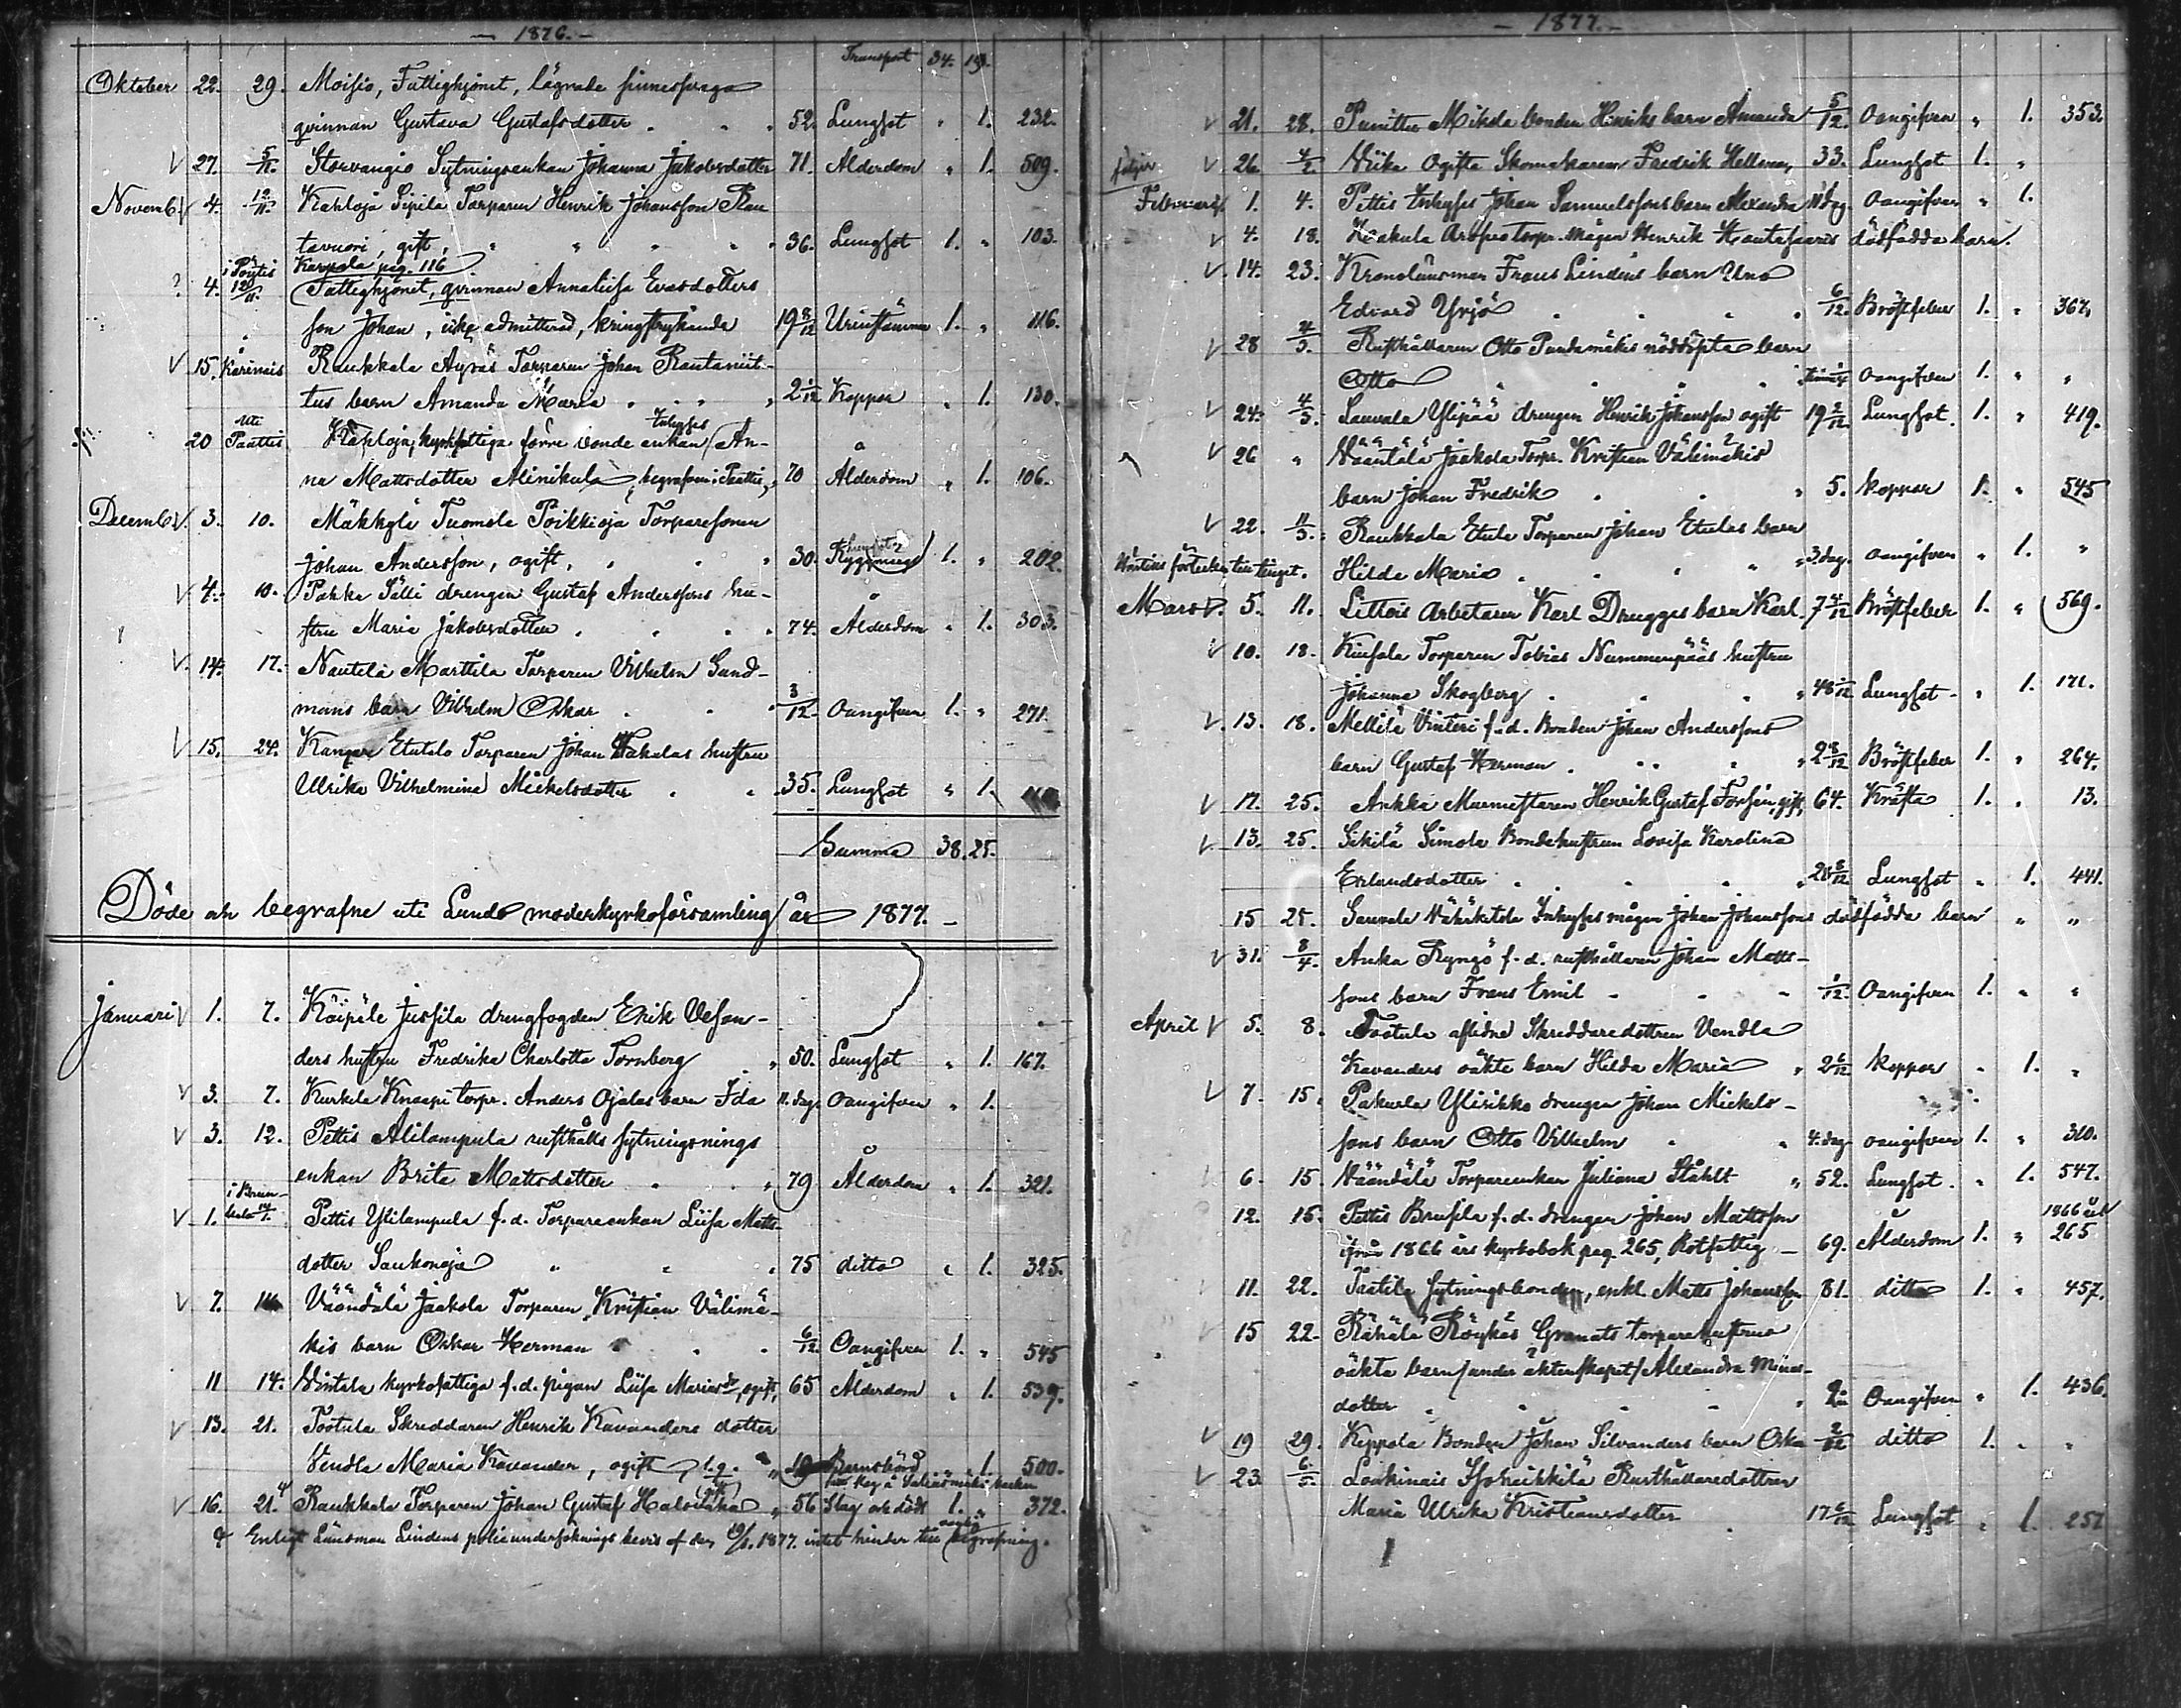 — 1876. —
Transport 34. 19.
Oktober 22. 29. Moisio, Fattighjonet, lägrade
qvinnan Gustava Gustafsdotter 52. Lungsot " 1. 232.
V 27. 5/11. Storvangio Sytningsenkan Johanna Jakobsdotter 71. Ålderdom " 1. 509.
Novemb. 4. 12/11. Karhoja Sipilä Torparen Henrik Johansson Rau
tavuori, gift, 36. Lungsot 1. " 103.
i Pöytis Karpola pag. 116
? 4. 12/11. Fattighjonet, qvinnan Annalisa Evasdotters
son Johan, icke admitterad, kringstrykande 19 8/12 1. " 116.
V 15. i Karinais Raukkala Äyräs Torparen Johan Rautaniit-
tus barn Amanda Maria 2 1/12 Koppor " 1. 130.
20 uti Paattis Karhoja, kyrkfattiga förre bonde enkan Inhyses An-
na Mattsdotter Alinikula, begrafven i Paattis, 70 Ålderdom " 1. 106.
Decemb. V. 3. 10. Mäkkylä Tuomola Poikkioja Torparesonen
Johan Andersson, ogift, 30. 1. " 202.
V 4. 10. Pahka Sälli drengen Gustaf Anderssons hu-
stru Maria Jakobsdotter 74. Ålderdom " 1. 303.
V. 14. 17. Nautelä Marttila Torparen Vilhelm Sund-
mans barn Vilhelm Oskar 3/12 Oangifven 1. " 271.
V 15. 24. Kangare Etutalo Torparen Johan Hakalas hustru
Ulrika Vilhelmina Mickelsdotter 35. Lungsot " 1.
Summa 38. 25.
Döde och begrafne uti Lundo moderkyrkoförsamling år 1877. —
Januari V 1. 7. Käipälä Jussila drengfogden Erik Vesan-
ders hustru Fredrika Charlotta Tornberg " 50. Lungsot " 1. 167.
V 3. 7. Kurkela Knaapi torpr. Anders Ojalas barn Ida 11. dag. Oangifven " 1.
V 3. 12. Pettis Alilampula rusthålls sytningsnings
enkan Brita Mattsdotter " 79 Ålderdom " 1. 321.
V 1. i Brun- 14/1. Pettis Ylilampula f. d. Torpareenkan Liisa Matts
dotter Saukonoja " 75 ditto " 1. 325.
V 7. 14. Väändälä Jaakola Torparen Kristian Välimä-
kis barn Oskar Herman 6/12. Oangifven 1. " 545
11 14. Vintala kyrkofattiga f. d. pigan Liisa Mariasdr, ogift, 65 Ålderdom " 1. 539.
V 13. 21. Tootula Skreddaren Henrik Kavanders dotter
Vendla Maria Kavander, ogift " 19 Barnsbörd 1. 500.
V 16. 21. Raukkala Torparen Johan Gustaf gift " 56 Slag och dödt 1. " 372.
Enligt Länsman Lindens polisundersöknings bevis af den 19/1. 1877. intet hinder till begrafning.
— 1877. —
V 21. 28. Punittu Mikola bonden Henriks barn Amanda 5/12. Oangifven " 1. 353.
V 26. 4/2. Viika Ogifta Skomakaren Fredrik Hellman, 33. Lungsot 1. "
Februari 1. 4. Pettis Inhyses Johan Samuelssons barn Alexandra 11 dag. Oangifven " 1.
V 4. 18. Haakula torpr. mågen Henrik Hautasaaris dödfödda barn.
V. 14. 23. Kronolänsman Frans Lindéns barn Uno
Edvard Yrjö 6/12. Bröstfeber 1. " 367.
V 28 4/3. Rusthållaren Otto Pundamäkis nöddöpta barn
Otto oangifven 1. " "
V 24. 4/3. Sauvala Ylipää drengen Henrik Johansson ogift 19 2/12. Lungsot 1. " 419.
V 26 " Väänälä Jaakola Torpr. Kristian Välimäkis
barn Johan Fredrik " 5. koppor 1. " 545
V 22. 11/3. Raukkala Etula Torparen Johan Etulas barn
Hilda Maria " 3. dag. oangifven " 1. "
Mars V. 5. 11. Littois Arbetaren Karl Drugges barn Karl 7 4/12 Bröstfeber 1. " 569.
V 10. 18. Kuisala Torparen Tobias Nummenpääs hustru
Johanna Skogberg " 48 1/12 Lungsot " 1. 171.
V. 13. 18. Mellilä Vinteri f. d. Bonden Johan Anderssons
barn Gustaf Herman " 2 8/12 Bröstfeber 1. " 264.
V 17. 25. Ankka Murmestaren Henrik Gustaf Forsén, gift, 64. Kräfta 1. " 13.
V. 13. 25. Sikilä Simola Bondehustrun Lovisa Karolina
Erlandsdotter " 28 8/12 Lungsot " 1. 441.
15 25. Sauvala Inhyses mågen Johan Johanssons dödfödda barn " "
V 31. 8/4. Anka Ryngö f. d. rusthållaren Johan Matts-
sons barn Frans Emil 1/12. Oangifven 1. " "
April V 5. 8. Tootula aflidne Skreddaredottren Vendla
Kavanders oäkta barn Hilda Maria " 2 6/12 koppor " 1. "
V 7. 15. Pakurla Ylirikko drengen Johan Mickels-
sons barn Otto Vilhelm " 4. dag oangifven 1. " 310.
6. 15. Väändälä Torpareenkan Juliana Ståhlt " 52. Lungsot " 1. 547.
12. 15. Pettis f. d. drengen Johan Mattsson 1866 års
ifrån 1866 års kyrkobok pag. 265, Rotfattig — 69. Ålderdom 1. " 265
11. 22. Taatila sytningsbonden, enkl. Matts Johansson 81. ditto 1. " 457.
15 22. Rähälä Röykäs Granats torparehustrus
oäkta barn/under äktenskapet/Alexandra Minas-
dotter " Oangifven " 1. 436.
V 19 29. Keppola Bonden Johan Silvanders barn Oskar 2/12 ditto 1. " "
V 23. 6/5. Loukinais Isoheikkilä Rusthållaredottren
Maria Ulrika Kristiansdotter 17 6/12 Lungsot " 1. 257